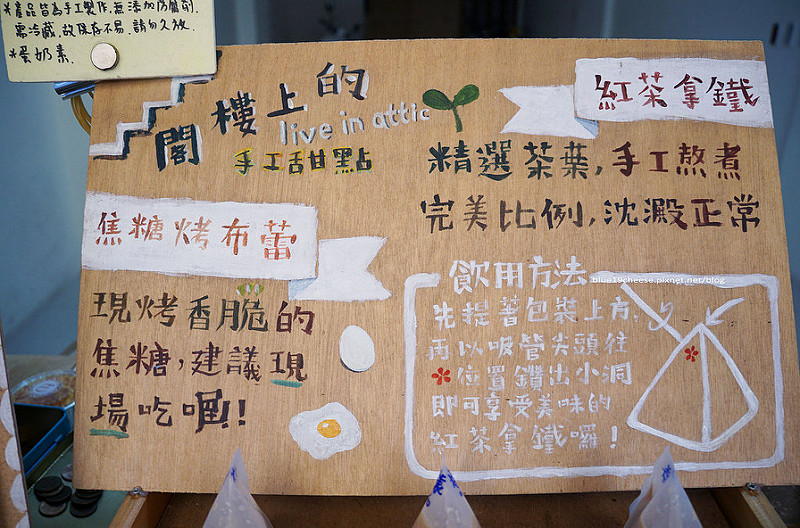 *產品皆為手工製作,無添加防腐劑.
需冷藏,故保存不易,請勿久放.
*蛋奶素.
閣樓上的
live in attic
手工甜點
紅茶拿鐵
精選茶葉,手工熬煮
完美比例,沈澱正常
焦糖烤布蕾
現烤香脆的
焦糖,建議現
場吃喔!
飲用方法
blue19cheese.pixnet.net/blog
先提著包裝上方,
再以吸管尖頭往
*位置鑽出小洞
即可享受美味的
紅茶拿鐵囉!